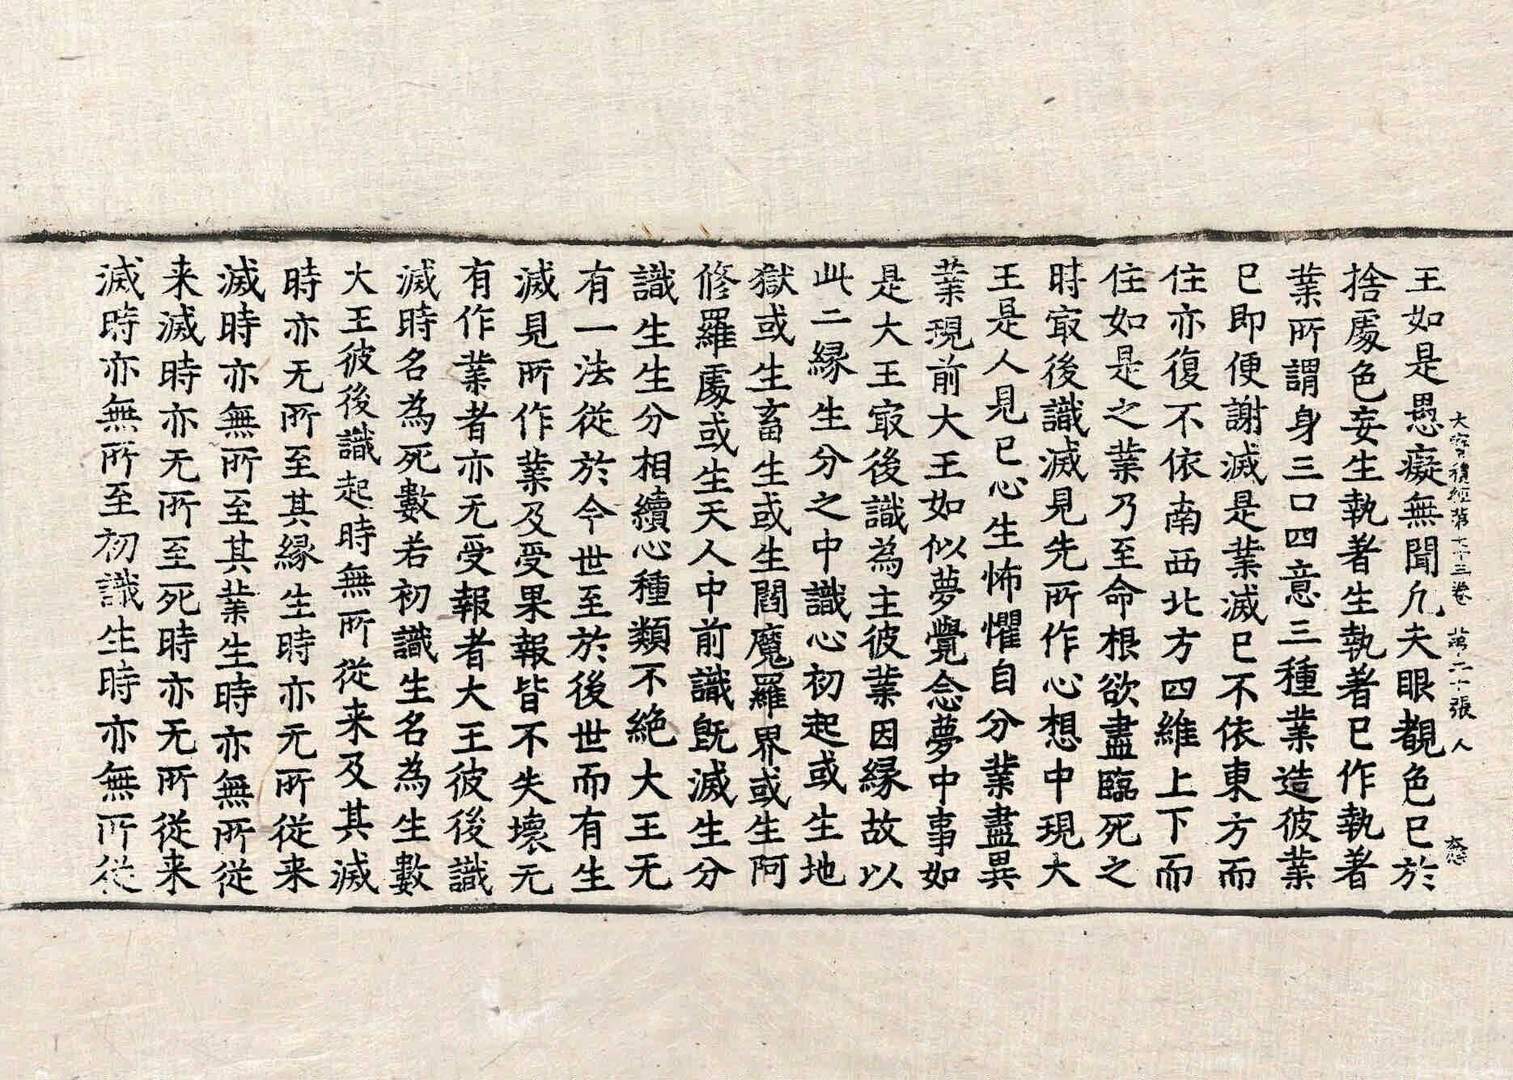 大寶積經第七十三卷 第二十張 人
王如是愚癡無聞凡夫眼覩色已於
捨處色妄生執著生執著已作執著
業所謂身三口四意三種業造彼業
已即便謝滅是業滅已不依東方而
住亦復不依南西北方四維上下而
住如是之業乃至命根欲盡臨死之
時㝡後識滅見先所作心想中現大
王是人見已心生怖懼自分業盡異
業現前大王如似夢覺念夢中事如
是大王㝡後識為主彼業因緣故以
此二緣生分之中識心初起或生地
獄或生畜生或生閻魔羅界或生阿
修羅處或生天人中前識既滅生分
識生生分相續心種類不絕大王无
有一法從於今世至於後世而有生
滅見所作業及受果報皆不失壞无
有作業者亦无受報者大王彼後識
滅時名為死數若初識生名為生數
大王彼後識起時無所從来及其滅
時亦无所至其緣生時亦无所從来
滅時亦無所至其業生時亦無所從
来滅時亦无所至死時亦无所從来
滅時亦無所至初識生時亦無所從